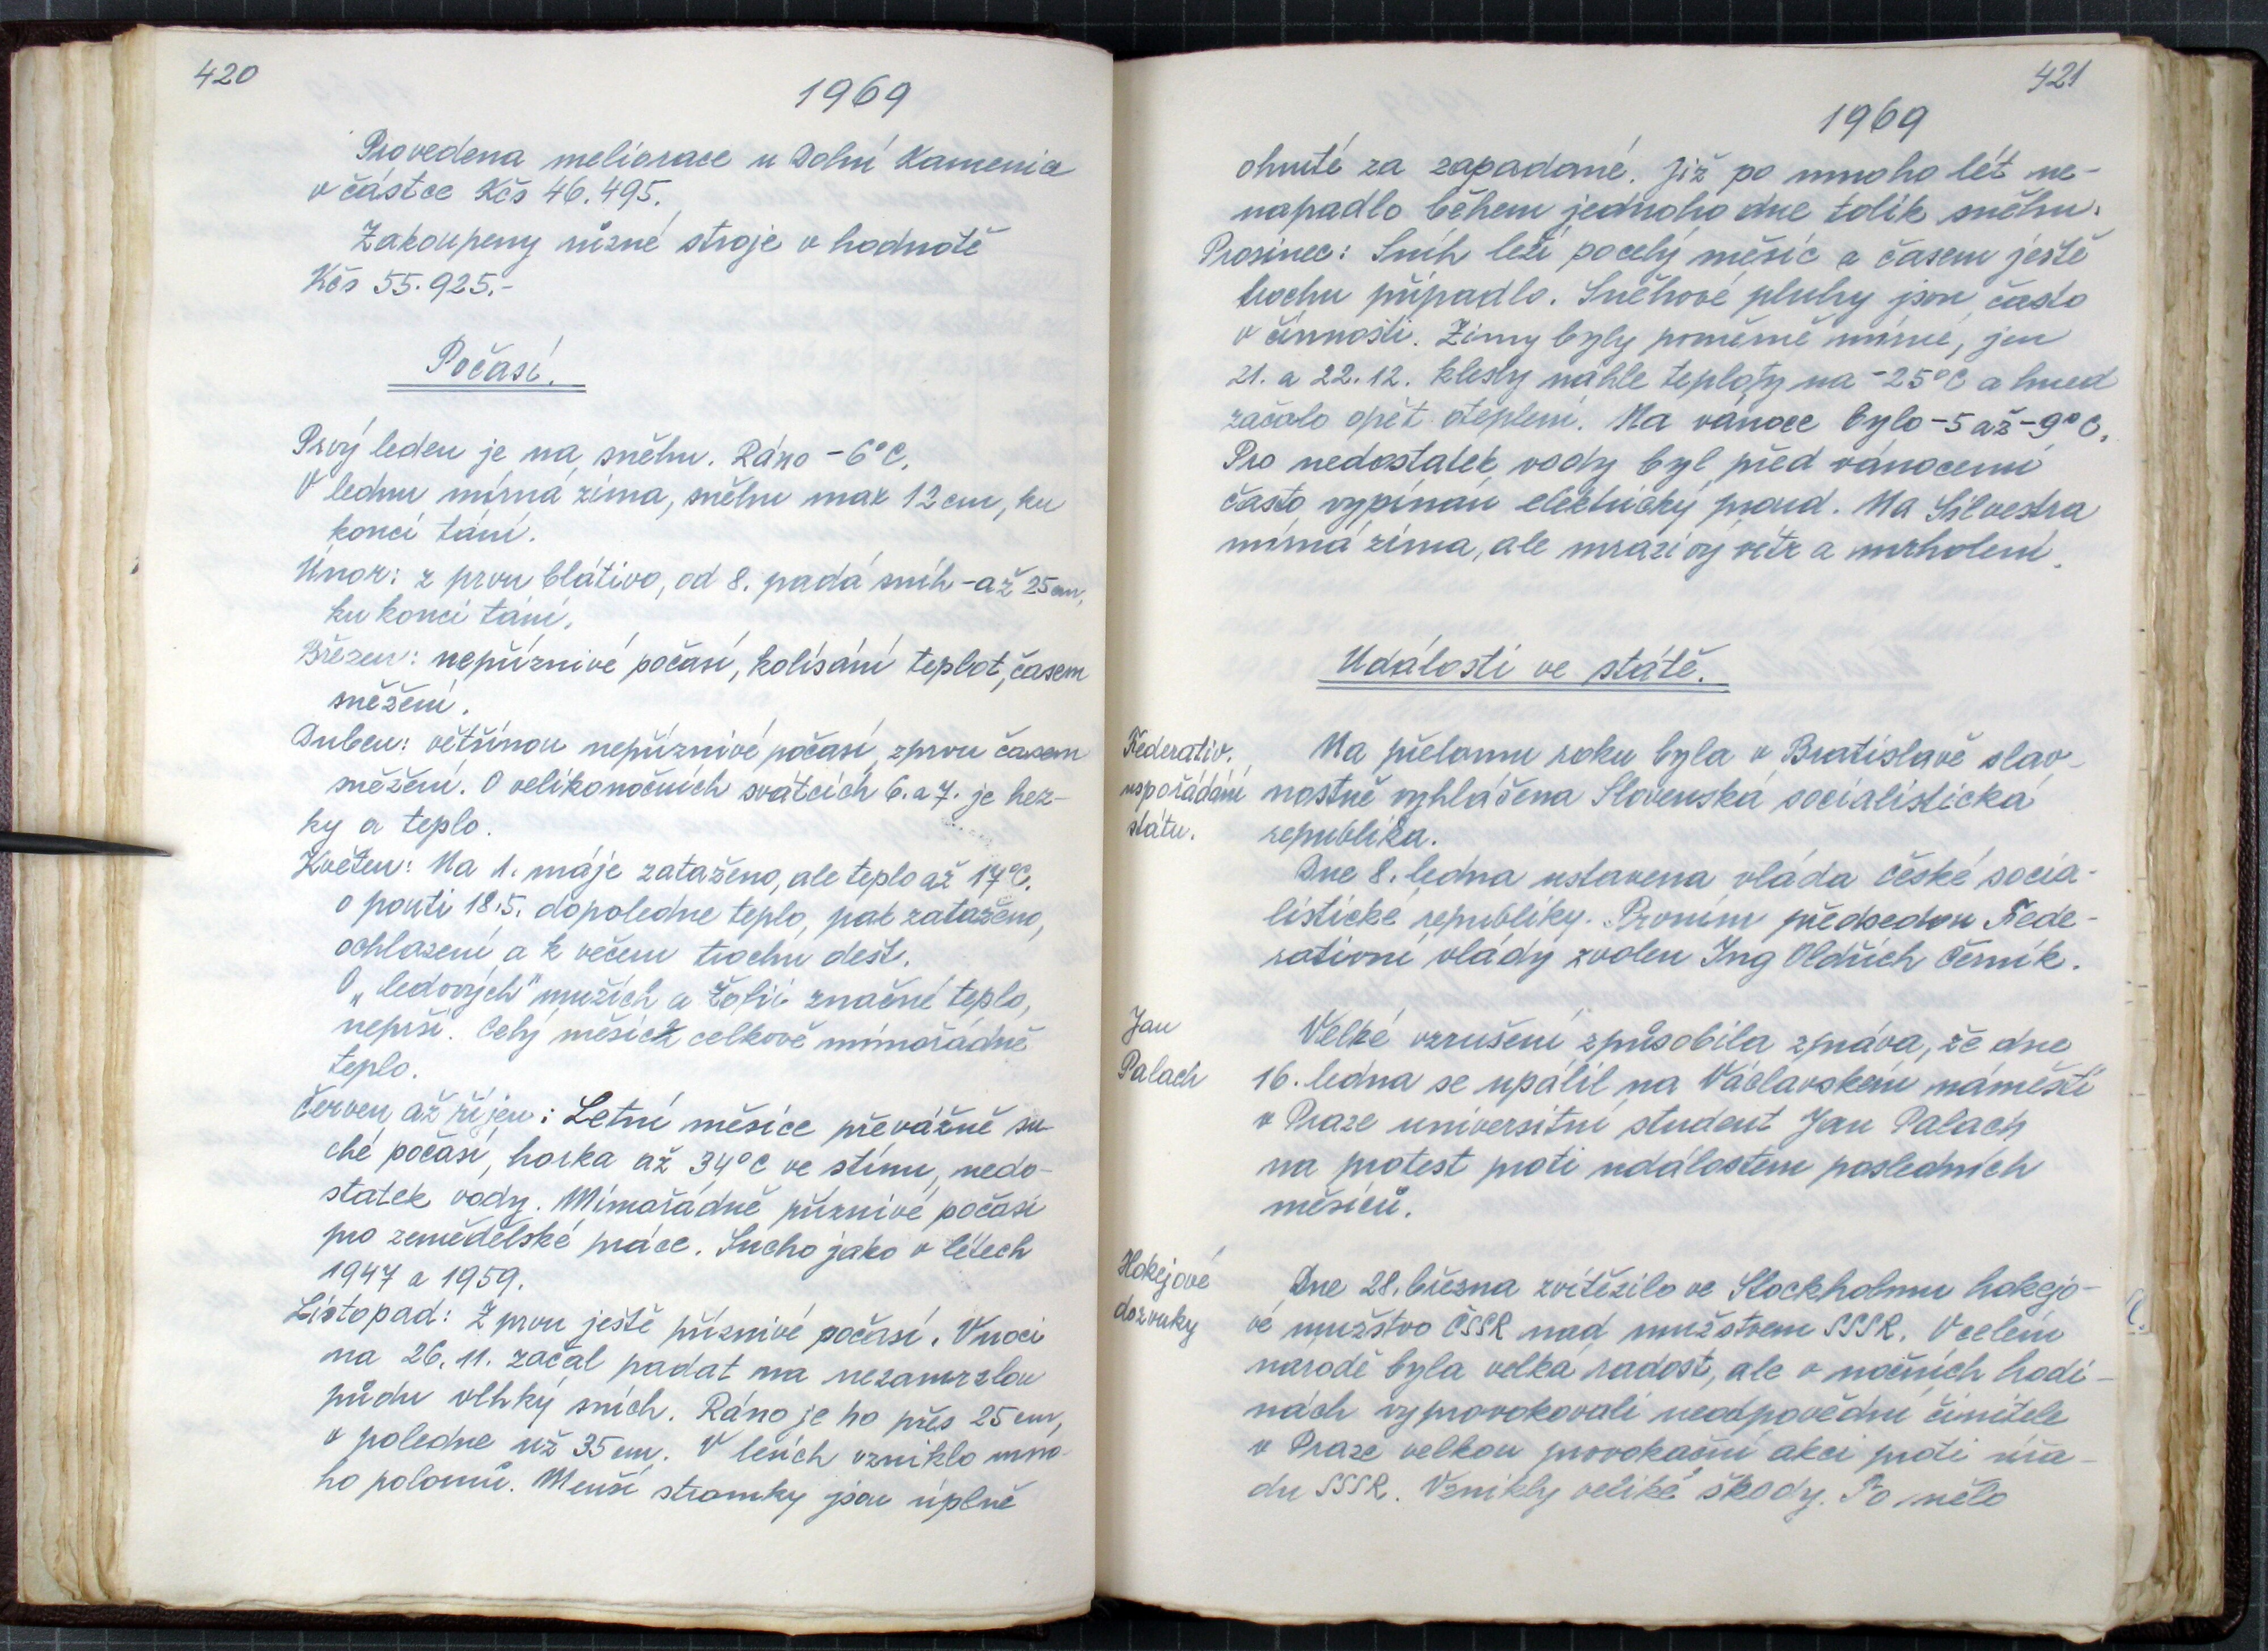 420
1969
Provedena meliorace u Dolní Kamenice
v částce Kčs 46.495.
Zakoupeny různé stroje v hodnotě
Kčs 55.925.-
Počasí.
Prvý leden je na sněhu. Ráno -6°C.
V lednu mírná zima, sněhu max 12 cm, ku
konci tání.
Únor: z prvu blátivo, od 8. padá sníh - až 25 cm,
ku konci tání.
Březen: nepříznivé počasí, kolísání teplot, časem
sněžení.
Duben: většinou nepříznivé počasí, zprvu časem
sněžení. O velikonočních svátcích 6. a 7. je hez-
ky a teplo.
Květen: Na 1. máje zataženo, ale teplo až 17°C.
o pouti 18.5. dopoledne teplo, pak zataženo,
ochlazení a k večeru trochu dešť.
O „ledových" mužích a Žofii značné teplo,
neprší. Celý měsíc celkově mimořádně
teplo.
Červen až říjen: Letní měsíce převážně su
ché počasí, horka až 34°C ve stínu, nedo-
statek vody. Mimořádně příznivé počasí
pro zemědělské práce. Sucho jako v létech
1947 a 1959.
Listopad: Z prvu ještě příznivé počasí. V noci
na 26. 11. začal padat na nezamrzlou
půdu vlhký sních. Ráno je ho přes 25 cm,
v poledne už 35 cm. V lesích vzniklo mno-
ho polomů. Menší stromky jsou úplně
421
1969
ohnuté za zapadané. Již po mnoho lét ne-
napadlo během jednoho dne tolik sněhu.
Prosinec: Sníh leží po celý měsíc a časem ještě
trochu připadlo. Sněhové pluhy jsou často
v činnosti. Zimy byly poměrně mírné, jen
21. a 22. 12. klesly náhle teploty na -25°C a hned
začalo opět oteplení. Na vánoce bylo -5 až -9°C.
Pro nedostatek vody byl před vánocemi
často vypínán elektrický proud. Na Silvestra
mírná zima, ale mrazivý vítr a mrholení.
Události ve státě.
Federativ.
uspořádání
státu.
Na přelomu roku byla v Bratislavě slav-
nostně vyhlášena Slovenská socialistická
republika.
Dne 8. ledna ustavena vláda české socia-
listické republiky. Prvním předsedou Fede-
rativní vlády zvolen Ing Oldřich Černík.
Jan
Palach
Velké vzrušení způsobila zpráva, že dne
16. ledna se upálil na Václavském náměstí
v Praze universitní student Jan Palach
na protest proti událostem posledních
měsíců.
Hokejové
dozvuky
Dne 28. března zvítězilo ve Stockholmu hokejo-
vé mužstvo ČSSR nad mužstvem SSSR. V celém
národě byla velká radost, ale v nočních hodi-
nách vyprovokovali neodpovědní činitelé
v Praze velkou provokační akci proti úřa-
du SSSR. Vznikly veliké škody. To mělo